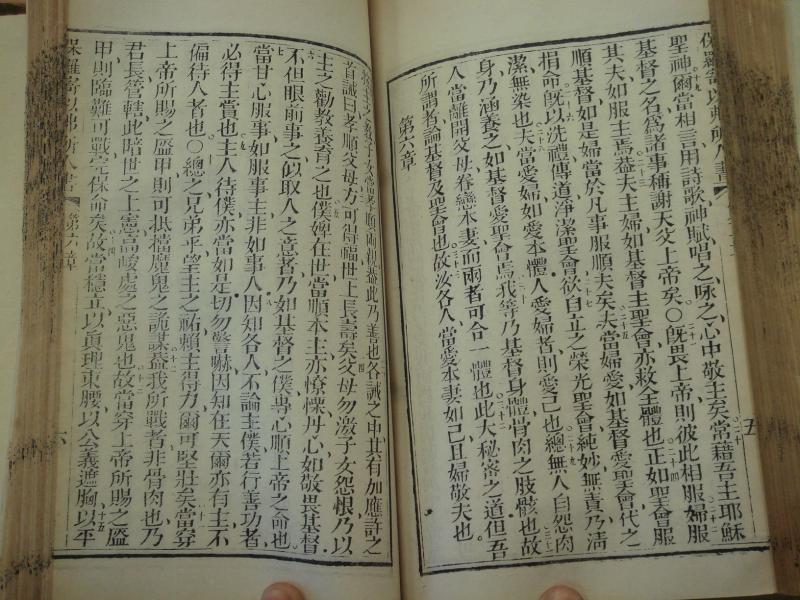 保羅寄以弗所人書
五
聖神爾當相言用詩歌神賦唱之咏之心中敬主矣常藉吾主耶穌
基督之名為諸事稱謝天父上帝矣○旣畏上帝則彼此相服婦服
其夫如服主焉蓋夫主婦如基督主聖會亦救全體也正如聖會服
順基督如是婦當於凡事服順夫矣夫當婦愛如基督愛聖會代之
捐命旣以洗禮傳道淨潔聖會欲自立之榮光聖會純妙無責乃清
潔無染也夫當愛婦如愛本體人愛婦者則愛己也總無人自怨肉
身乃涵養之如基督愛聖會焉我等乃基督身體骨肉之肢骸也故
人當離開父母眷戀本妻而兩者可合一體也此大秘密之道但吾
所謂者論基督及聖會也故汝各人當愛本妻如己且婦敬夫也
第六章
之教子女當孝順兩親蓋此乃善也各誡之中其有加應許之
首誡曰孝順父母方可得福世上長壽矣父母勿激子女怨恨乃以
主之勸教養育之也僕婢在世當順本主亦憭慄丹心如敬畏基督
不但眼前事之似取人之意者乃如基督之僕專心順上帝之命也
當甘心服事如服事主非如事人因知各人不論主僕若行善功者
必得主賞也主人待僕亦當如是切勿警嚇因知在天爾亦有主不
偏待人者也○總之兄弟乎望主之祐賴主得力爾可堅壯矣當穿
上帝所賜之盔甲則可抵擋魔鬼之詭謀蓋我所戰者非骨肉也乃
君長管轄此暗世之上憲高峻處之惡鬼也故當穿上帝所賜之盔
甲則臨難可戰完保命矣故當穩立以真理束腰以公義遮胸以平
保羅寄以弗所人書
第六章
六